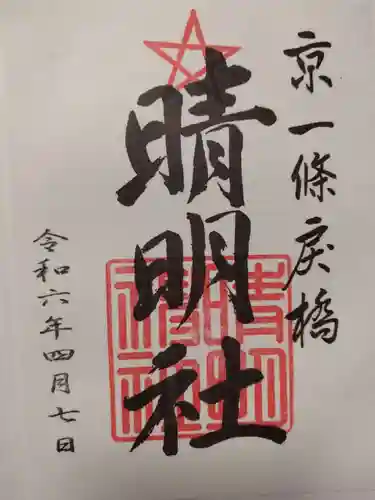 京一條戻橋
晴明社
晴明神社
令和六年四月七日